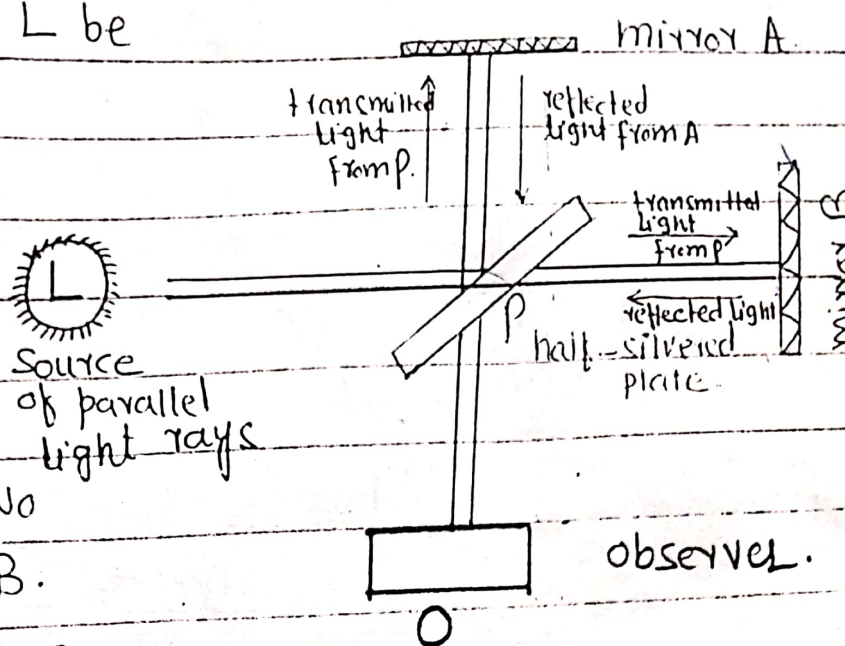 L be
mirror A.
transmitted
light
from P.
reflected
light from A
transmittal
light
from P
L
P
reflected light
half-silvered
plate.
Source
of parallel
light rays
No
B.
observer.
O